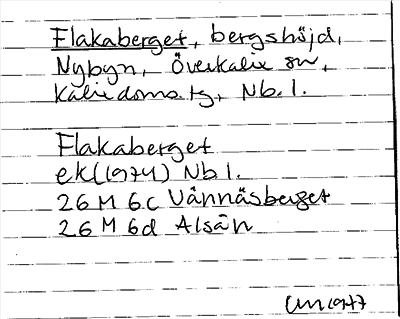 Flakaberget, bergshöjd,
Nybyn, Överkalix sn,
Kalix doms tg, Nb.l.
Flakaberget
ek (1974) Nb l.
26 M 6c Vännäsberget
26 M 6d Alsån
1977